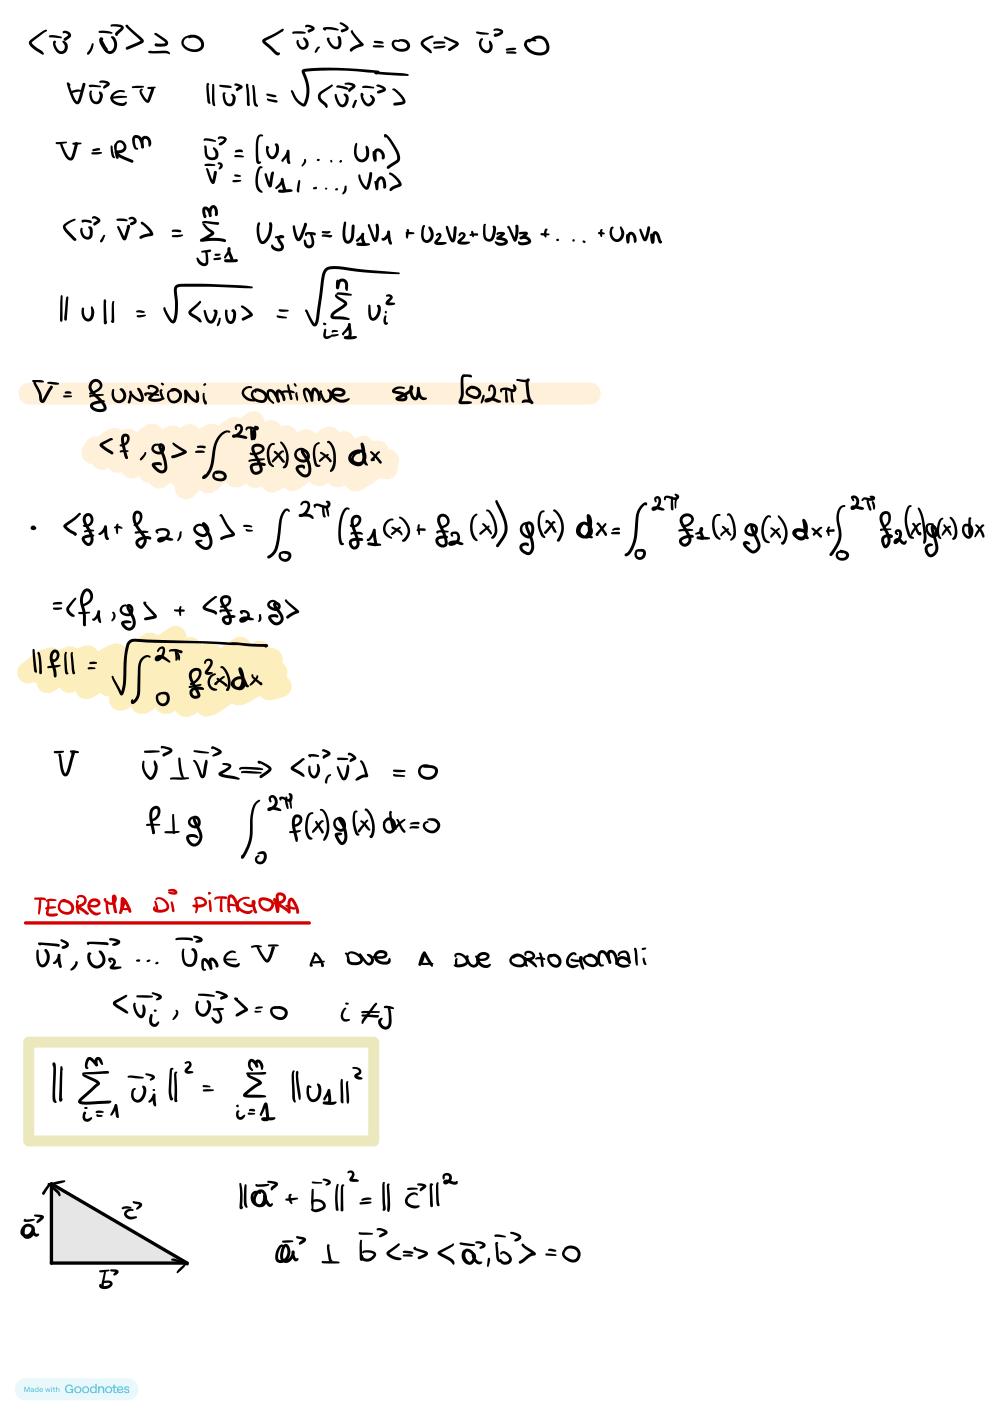 <u⃗ , u⃗> ≥ 0 < u⃗, u⃗> = 0 <=> u⃗ = 0
∀u⃗ ∈ V ||u⃗|| = √<u⃗, u⃗>
V = ℝᵐ u⃗ = (u1, ... un)
v⃗ = (v1, ..., vn)
<u⃗, v⃗> = ∑_{J=1}^{m} u_J v_J = u1v1 + u2v2 + u3v3 + ... + unvn
||u|| = √<u,u> = √∑_{i=1}^{n} u_i²
V = funzioni continue su [0,2π]
<f, g> = ∫_0^{2π} f(x) g(x) dx
· <f1 + f2, g> = ∫_0^{2π} (f1(x) + f2(x)) g(x) dx = ∫_0^{2π} f1(x) g(x) dx + ∫_0^{2π} f2(x) g(x) dx
= <f1, g> + <f2, g>
||f|| = √∫_0^{2π} f²(x) dx
V u⃗ ⊥ v⃗ <=> <u⃗, v⃗> = 0
f ⊥ g ∫_0^{2π} f(x) g(x) dx = 0
TEOREMA Di PiTAGORA
u⃗1, u⃗2 ... u⃗m ∈ V A DUE A DUE ORTOGOnali
<u⃗i, u⃗J> = 0 i ≠ J
||∑_{i=1}^{m} u⃗i||² = ∑_{i=1}^{m} ||u1||²
a⃗ c⃗ b⃗
||a⃗ + b⃗||² = ||c⃗||²
a⃗ ⊥ b⃗ <=> <a⃗, b⃗> = 0
Made with Goodnotes